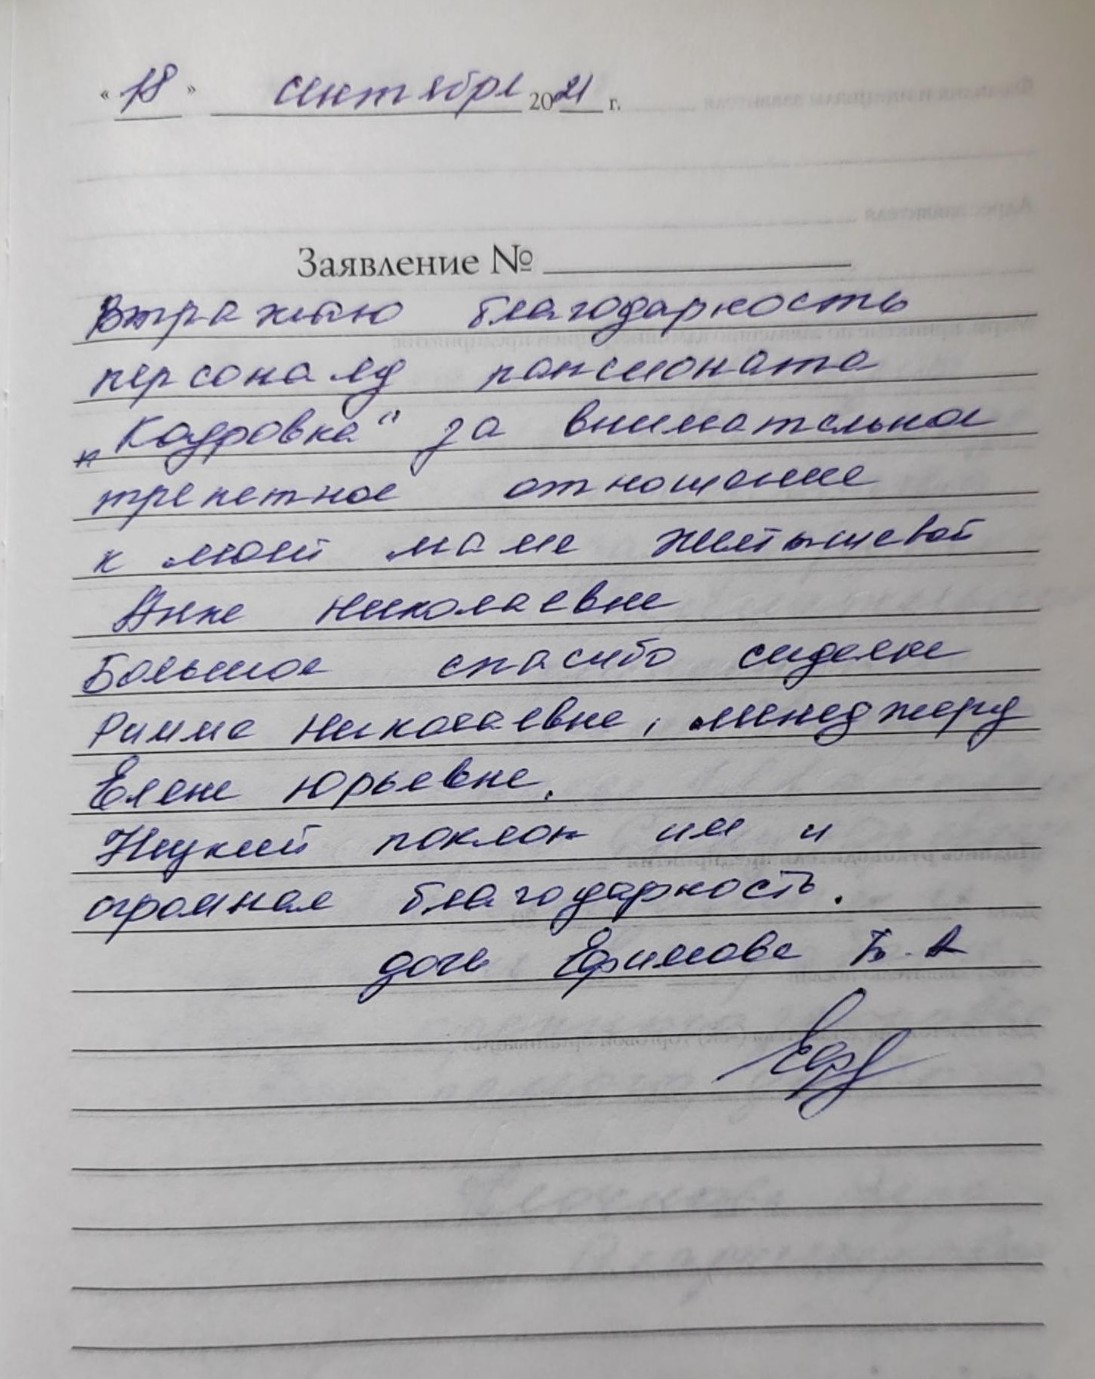 « 18 » сентября 2021 г.
Заявление №
Выражаю благодарность
персоналу пансионата
за внимательное
трепетное отношение
к моей маме
Анне Николаевне
Большое спасибо сиделке
Римме Николаевне, менеджеру
Елене Юрьевне.
Низкий поклон им и
огромная благодарность.
дочь Ефимова